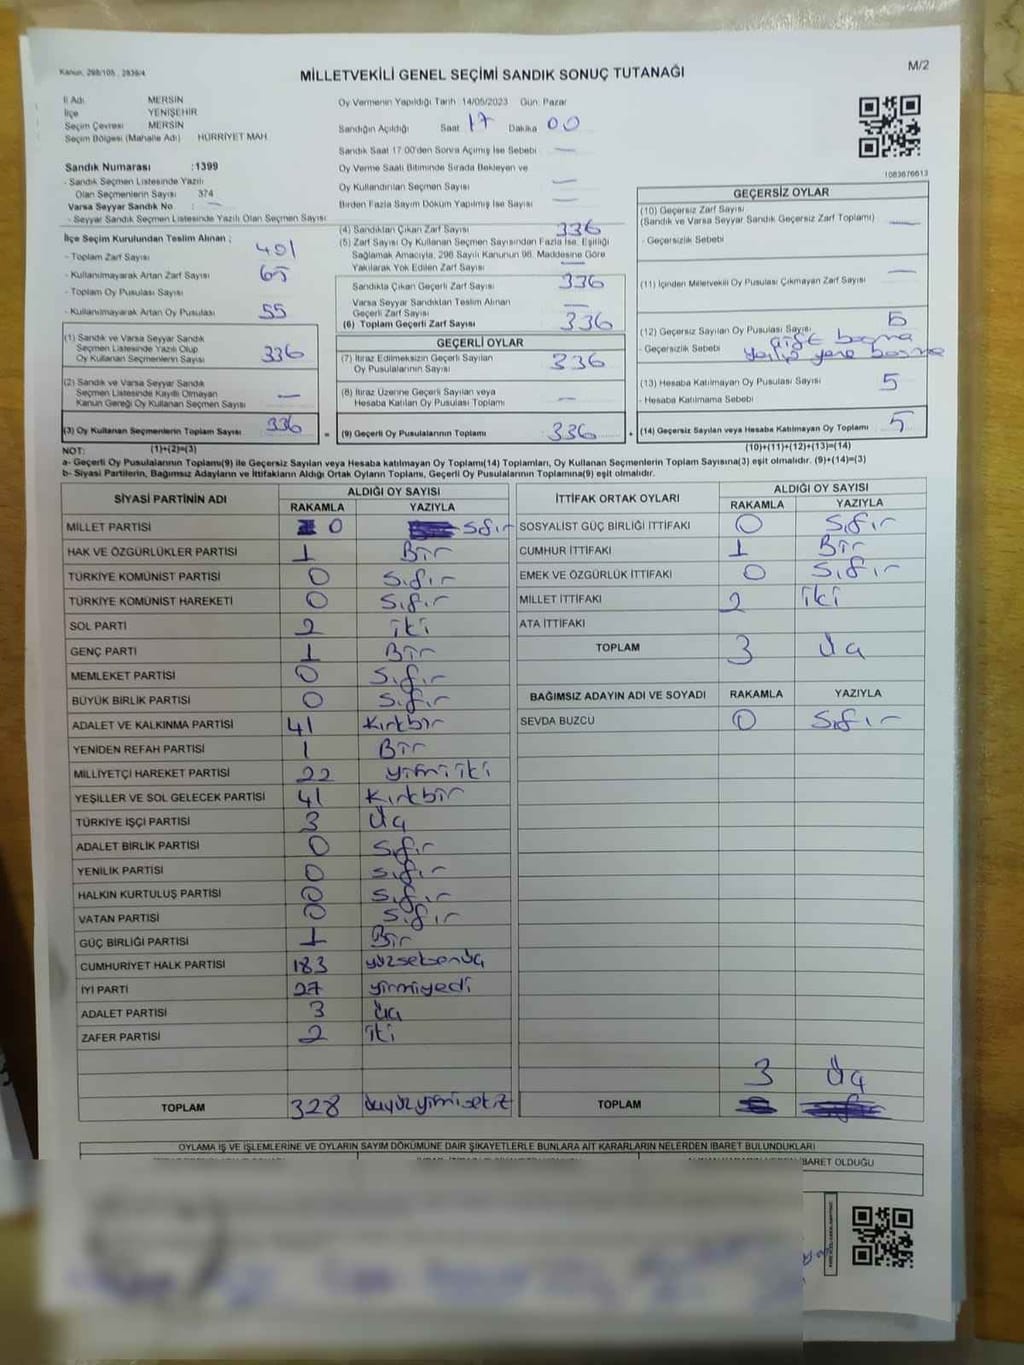 Kanun, 298/105 , 2839/4
MİLLETVEKİLİ GENEL SEÇİMİ SANDIK SONUÇ TUTANAĞI
M/2
İl Adı MERSİN
İlçe YENİŞEHİR
Seçim Çevresi MERSİN
Seçim Bölgesi (Mahalle Adı) HÜRRİYET MAH.
Sandık Numarası :1399
- Sandık Seçmen Listesinde Yazılı
Olan Seçmenlerin Sayısı 374
Varsa Seyyar Sandık No : —
- Seyyar Sandık Seçmen Listesinde Yazılı Olan Seçmen Sayısı
Oy Vermenin Yapıldığı Tarih 14/05/2023 Gün: Pazar
Sandığın Açıldığı Saat 17 Dakika 00
Sandık Saat 17:00'den Sonra Açılmış İse Sebebi —
Oy Verme Saati Bitiminde Sırada Bekleyen ve
Oy Kullandırılan Seçmen Sayısı —
Birden Fazla Sayım Döküm Yapılmış İse Sayısı —
1083676613
İlçe Seçim Kurulundan Teslim Alınan ;
- Toplam Zarf Sayısı 401
- Kullanılmayarak Artan Zarf Sayısı 65
- Toplam Oy Pusulası Sayısı
- Kullanılmayarak Artan Oy Pusulası 55
(1) Sandık ve Varsa Seyyar Sandık
Seçmen Listesinde Yazılı Olup
Oy Kullanan Seçmenlerin Sayısı 336
(2) Sandık ve Varsa Seyyar Sandık
Seçmen Listesinde Kayıtlı Olmayan
Kanun Gereği Oy Kullanan Seçmen Sayısı —
(3) Oy Kullanan Seçmenlerin Toplam Sayısı 336
(4) Sandıktan Çıkan Zarf Sayısı 336
(5) Zarf Sayısı Oy Kullanan Seçmen Sayısından Fazla İse, Eşitliği
Sağlamak Amacıyla, 298 Sayılı Kanunun 98. Maddesine Göre
Yakılarak Yok Edilen Zarf Sayısı —
Sandıkta Çıkan Geçerli Zarf Sayısı 336
Varsa Seyyar Sandıktan Teslim Alınan
Geçerli Zarf Sayısı —
(6) Toplam Geçerli Zarf Sayısı 336
GEÇERLİ OYLAR
(7) İtiraz Edilmeksizin Geçerli Sayılan
Oy Pusulalarının Sayısı 336
(8) İtiraz Üzerine Geçerli Sayılan veya
Hesaba Katılan Oy Pusulası Toplamı —
= (9) Geçerli Oy Pusulalarının Toplamı 336
GEÇERSİZ OYLAR
(10) Geçersiz Zarf Sayısı
(Sandık ve Varsa Seyyar Sandık Geçersiz Zarf Toplamı) —
- Geçersizlik Sebebi
(11) İçinden Milletvekili Oy Pusulası Çıkmayan Zarf Sayısı —
(12) Geçersiz Sayılan Oy Pusulası Sayısı 5
- Geçersizlik Sebebi çift basma
yanlış yere basma
(13) Hesaba Katılmayan Oy Pusulası Sayısı 5
- Hesaba Katılmama Sebebi
+ (14) Geçersiz Sayılan veya Hesaba Katılmayan Oy Toplamı 5
NOT: (1)+(2)=(3)
(10)+(11)+(12)+(13)=(14)
a- Geçerli Oy Pusulalarının Toplamı(9) ile Geçersiz Sayılan veya Hesaba katılmayan Oy Toplamı(14) Toplamları, Oy Kullanan Seçmenlerin Toplam Sayısına(3) eşit olmalıdır. (9)+(14)=(3)
b- Siyasi Partilerin, Bağımsız Adayların ve İttifakların Aldığı Ortak Oyların Toplamı, Geçerli Oy Pusulalarının Toplamına(9) eşit olmalıdır.
SİYASİ PARTİNİN ADI ALDIĞI OY SAYISI
RAKAMLA YAZIYLA
MİLLET PARTİSİ 0 Sıfır
HAK VE ÖZGÜRLÜKLER PARTİSİ 1 Bir
TÜRKİYE KOMÜNİST PARTİSİ 0 Sıfır
TÜRKİYE KOMÜNİST HAREKETİ 0 Sıfır
SOL PARTİ 2 iki
GENÇ PARTİ 1 Bir
MEMLEKET PARTİSİ 0 Sıfır
BÜYÜK BİRLİK PARTİSİ 0 Sıfır
ADALET VE KALKINMA PARTİSİ 41 Kırkbir
YENİDEN REFAH PARTİSİ 1 Bir
MİLLİYETÇİ HAREKET PARTİSİ 22 yimiiki
YEŞİLLER VE SOL GELECEK PARTİSİ 41 Kırkbir
TÜRKİYE İŞÇİ PARTİSİ 3 Üç
ADALET BİRLİK PARTİSİ 0 Sıfır
YENİLİK PARTİSİ 0 Sıfır
HALKIN KURTULUŞ PARTİSİ 0 Sıfır
VATAN PARTİSİ 0 Sıfır
GÜÇ BİRLİĞİ PARTİSİ 1 Bir
CUMHURİYET HALK PARTİSİ 183 yüzseksenüç
İYİ PARTİ 27 yirmiyedi
ADALET PARTİSİ 3 üç
ZAFER PARTİSİ 2 iki
TOPLAM 328 üçyüzyimisekiz
İTTİFAK ORTAK OYLARI ALDIĞI OY SAYISI
RAKAMLA YAZIYLA
SOSYALİST GÜÇ BİRLİĞİ İTTİFAKI 0 Sıfır
CUMHUR İTTİFAKI 1 Bir
EMEK VE ÖZGÜRLÜK İTTİFAKI 0 Sıfır
MİLLET İTTİFAKI 2 iki
ATA İTTİFAKI
TOPLAM 3 Üç
BAĞIMSIZ ADAYIN ADI VE SOYADI RAKAMLA YAZIYLA
SEVDA BUZCU 0 Sıfır
3 Üç
TOPLAM
OYLAMA İŞ VE İŞLEMLERİNE VE OYLARIN SAYIM DÖKÜMÜNE DAİR ŞİKAYETLERLE BUNLARA AİT KARARLARIN NELERDEN İBARET BULUNDUKLARI
İBARET OLDUĞU